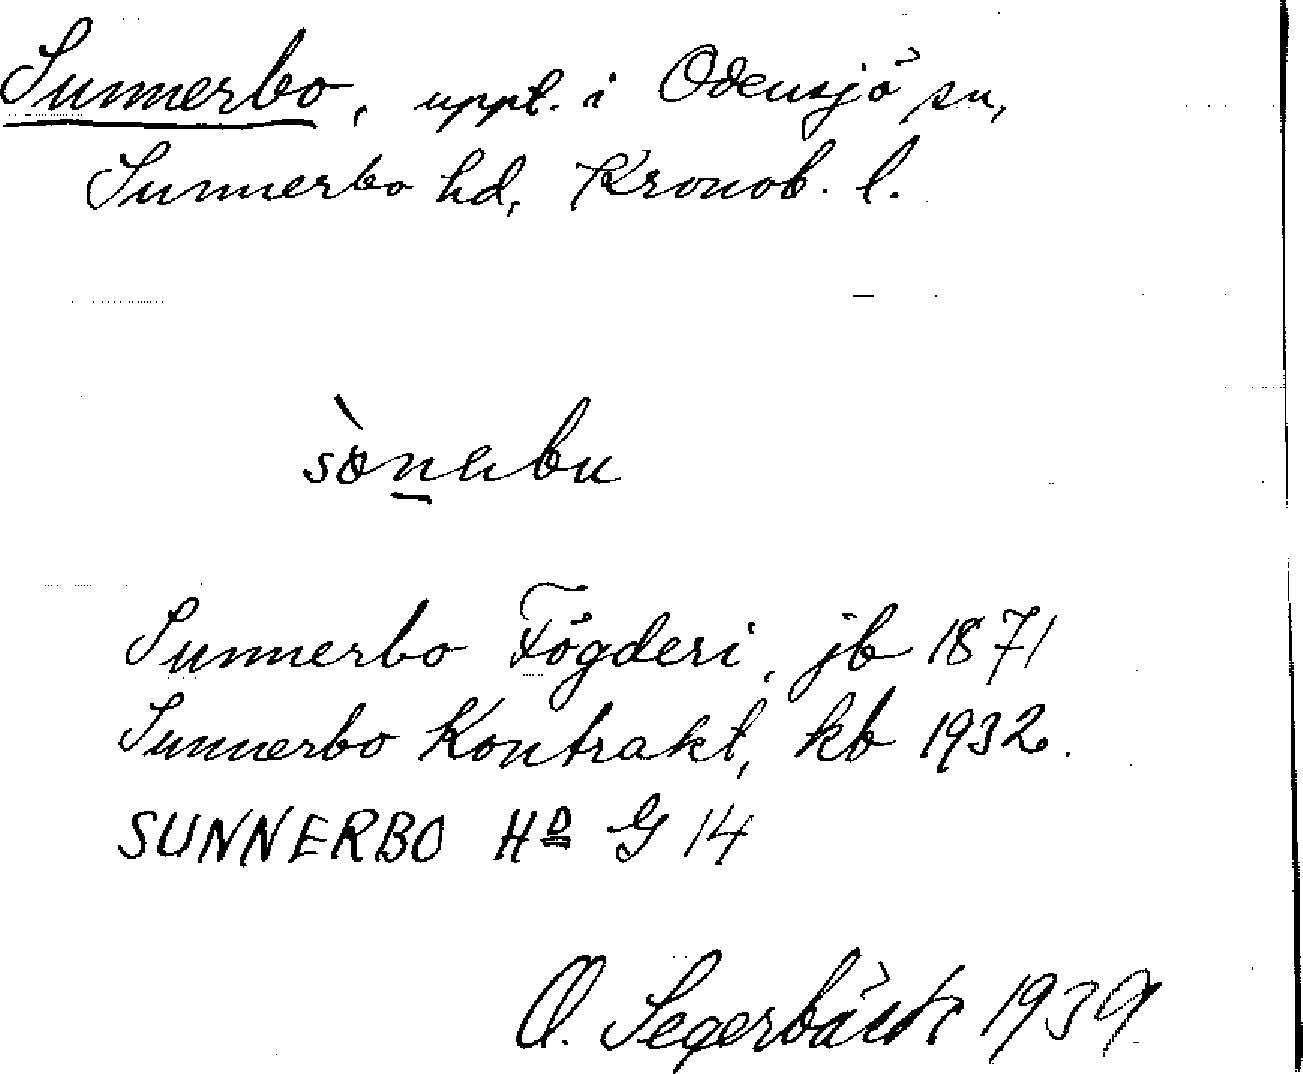 Sunnerbo, uppt. i Odensjö sn,
Sunnerbo hd, Kronob. l.
Sunnerbo Fögderi, jb 1871
Sunnerbo Kontrakt, kb 1932.
SUNNERBO HD G 14
O. Segerbäck 1939